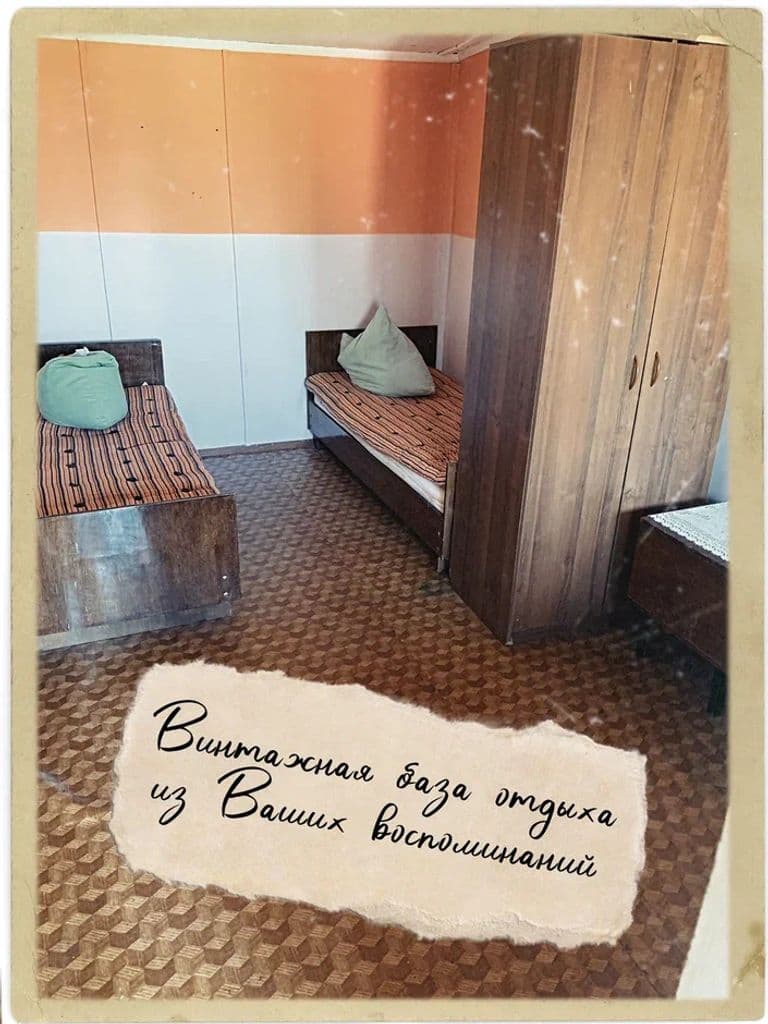 Винтажная база отдыха
из Ваших воспоминаний